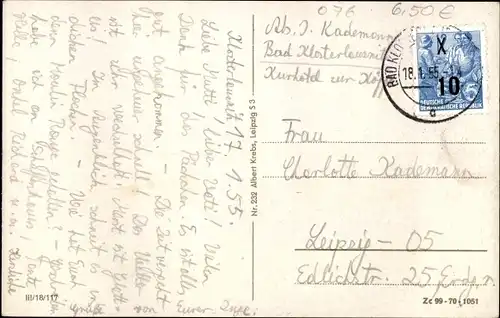 076 6,50 €
Abs. I. Kademann
Bad Klosterlausnitz
Kurhotel zur
BAD KLO
18.1.55
d
X
10
5
DEUTSCHE
DEMOKRATISCHE REPUBLIK
Frau
Charlotte Kademann
Leipzig - O5
Edlichstr. 25 Erdg.
Klosterlausnitz 17.1.55.
Liebe Mutti! Lieber Vati! Vielen
Dank für das Päckchen. Es ist alles
gut angekommen. - Die Zeit vergeht
hier schnell! Das Wetter
ist sehr Meist ist Glatt-
eis! Im Augenblick schneit es in
dicken Flocken. - Wie hat Euch
denn Moulin Rouge gefallen? -
habe ich an
Onkel Richard u. a. Herzliche
Grüße
von Eurer
Nr. 232 Albert Krebs, Leipzig S 3
III/18/117
Zc 99-70-1051